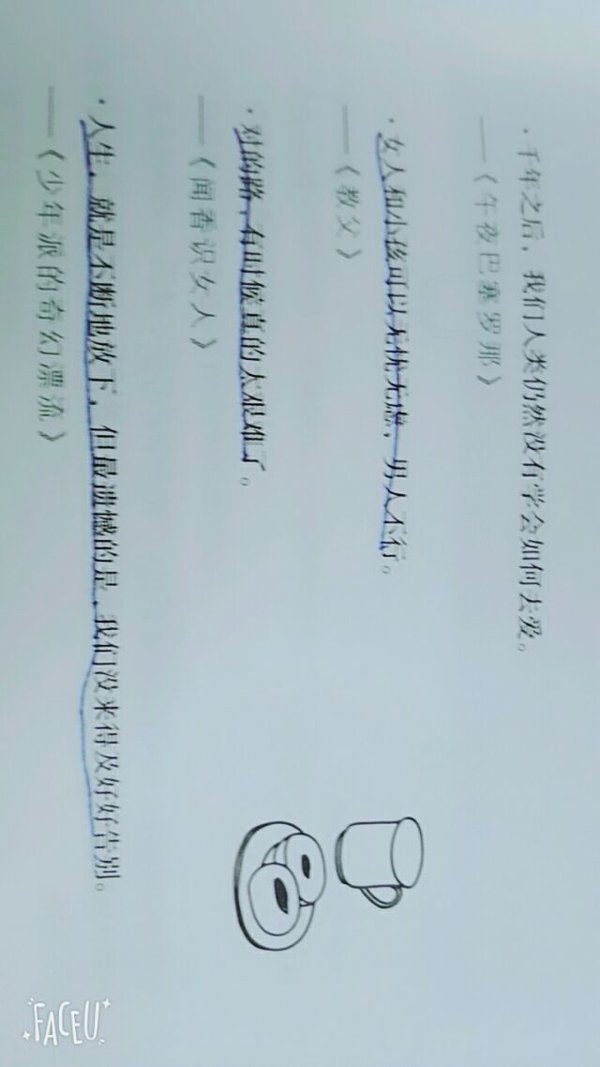 · 千年之后，我们人类仍然没有学会如何去爱。
——《午夜巴塞罗那》
· 女人和小孩可以无忧无虑，男人不行。
——《教父》
· 对的路，有时候真的太艰难了。
——《闻香识女人》
· 人生，就是不断地放下，但最遗憾的是，我们没来得及好好告别。
——《少年派的奇幻漂流》
FACEU